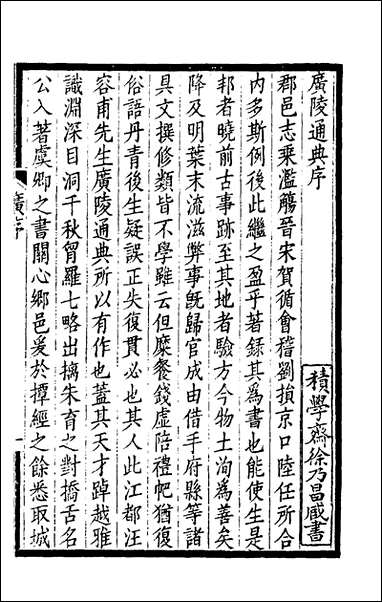 廣陵通典序
積學齋徐乃昌藏書
郡邑志乘濫觴晉宋賀循會稽劉損京口陸任所合
內多斯例後此繼之盈乎著錄其爲書也能使生是
邦者曉前古事跡至其地者驗方今物土洵爲善矣
降及明葉末流滋弊事旣歸官成由借手府縣等諸
具文撰修類皆不學雖云但縻餐錢虛陪禮帊猶復
俗語丹青後生疑誤正失復貫必也其人此江都汪
容甫先生廣陵通典所以有作也蓋其天才踔越雅
識淵深目洞千秋胷羅七略出摛朱育之對撟舌名
公入著虞卿之書關心鄉邑爰於撢經之餘悉取城
廣序
一